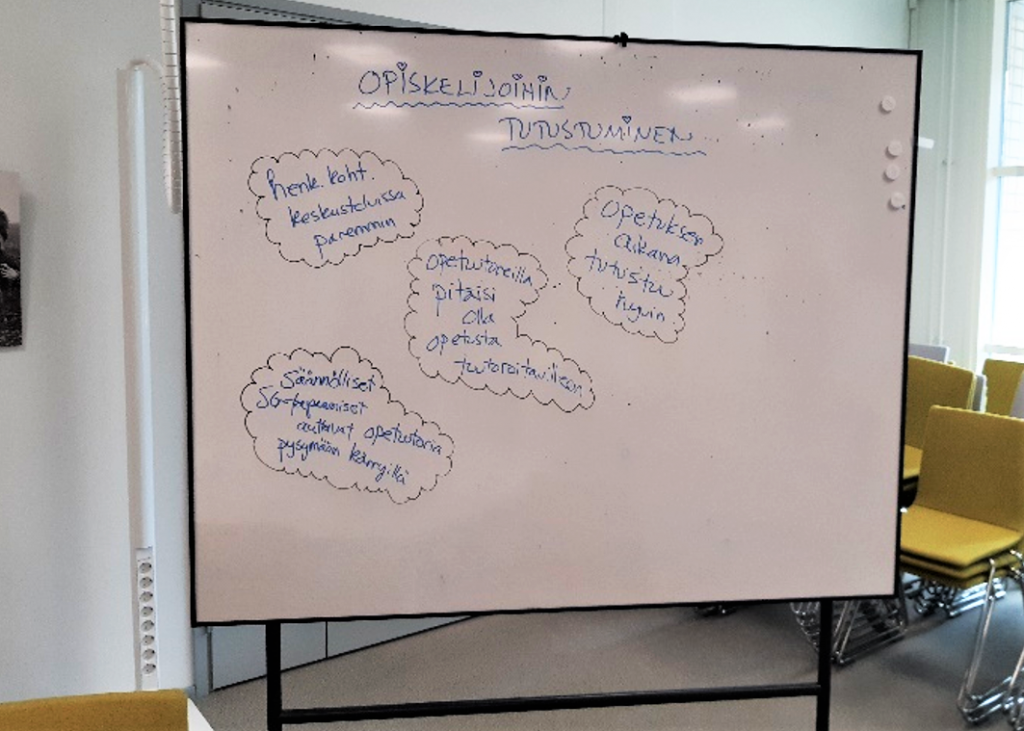 OPISKELIJOIHIN
TUTUSTUMINEN
henk. koht.
keskusteluissa
paremmin
Opetuksen
aikana
tutustuu
huonoin
opetuutoreilla
pitäisi
olla
opetusta
tuutoroitavilleen
Säännölliset
SG-tapaamiset
auttavat opetuutoria
pysymään kärryillä